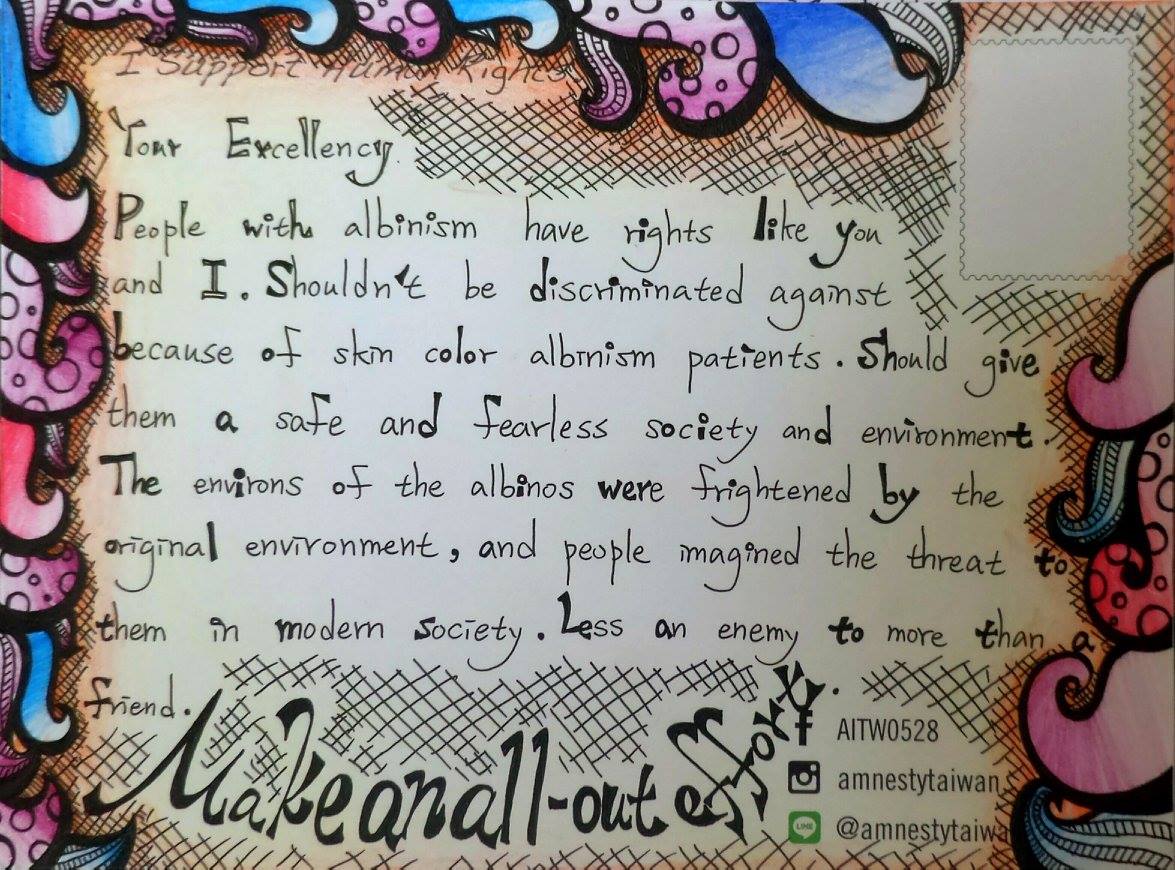 I Support Human Rights
Your Excellency.
People with albinism have rights like you
and I. Shouldn't be discriminated against
because of skin color albinism patients. Should give
them a safe and fearless society and environment.
The environs of the albinos were frightened by the
original environment, and people imagined the threat to
them in modern society. Less an enemy to more than a
friend.
Make an all-out effort.
AITW0528
amnestytaiwan
LINE
@amnestytaiwa